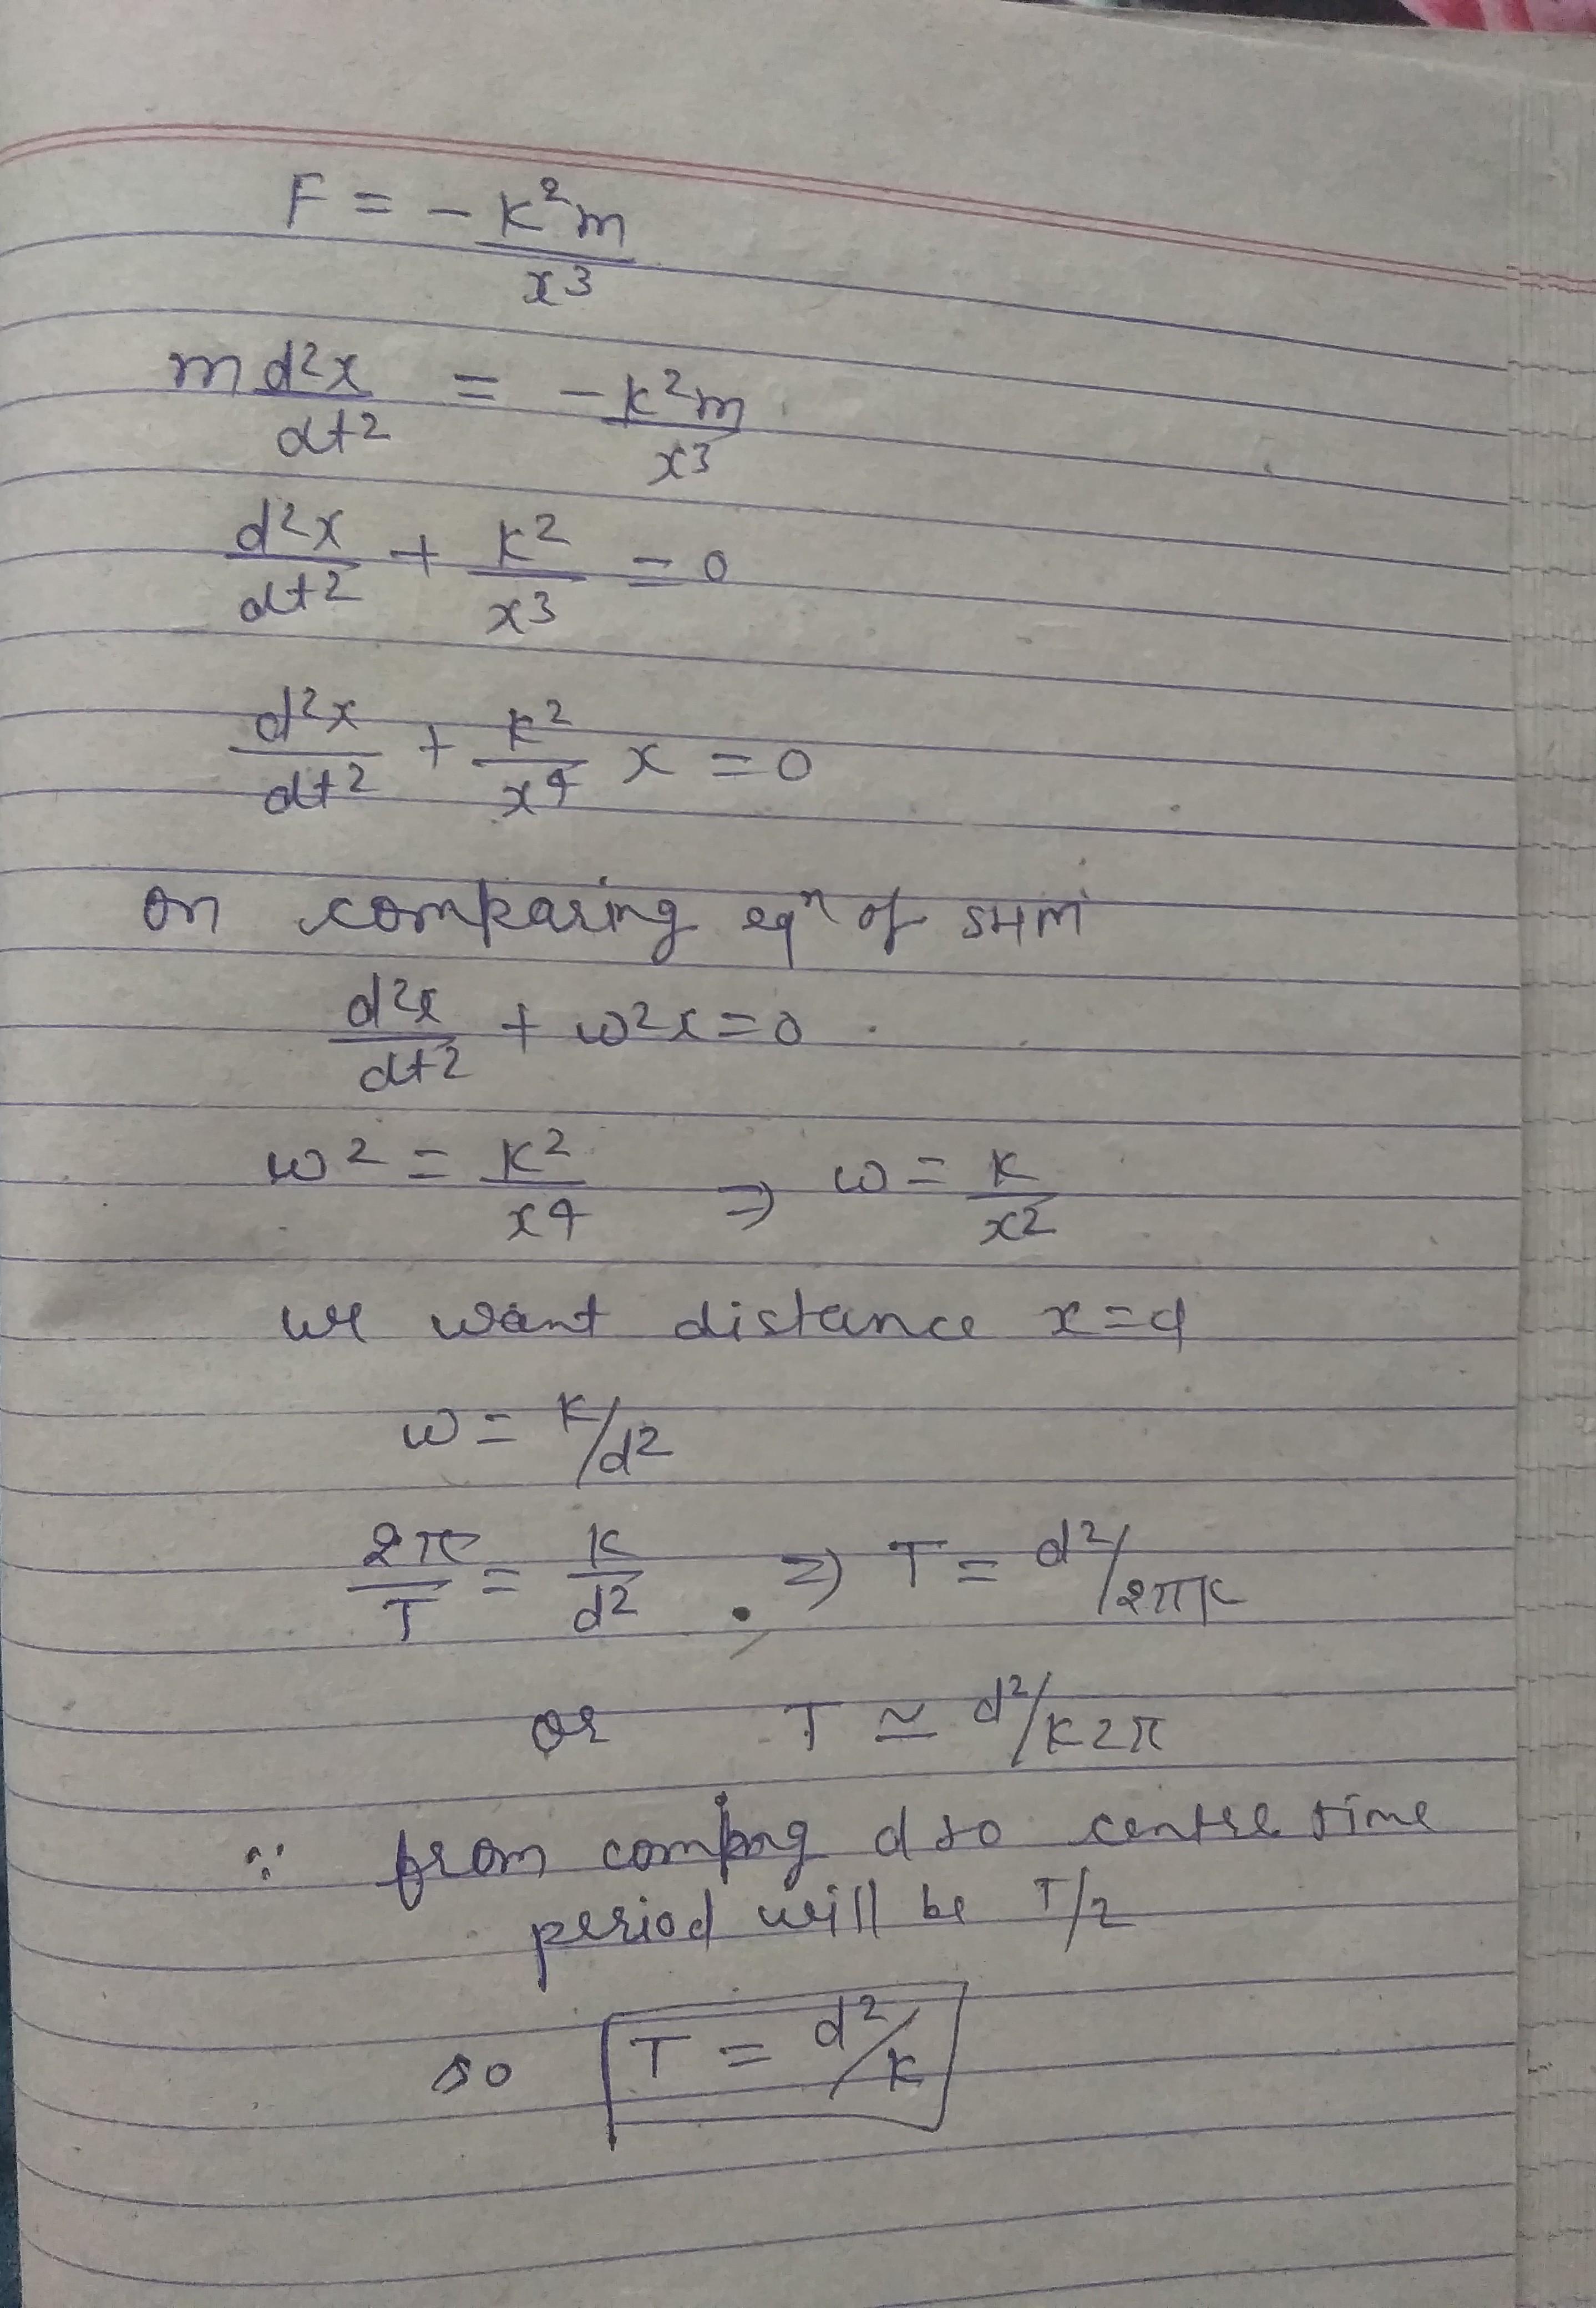 F = - K²m / x³
m d²x/dt² = - K²m / x³
d²x/dt² + K²/x³ = 0
d²x/dt² + K²/x⁴ x = 0
on comparing eqⁿ of SHM
d²x/dt² + ω²x = 0
ω² = K²/x⁴ ⇒ ω = K/x²
we want distance x = d
ω = K/d²
2π/T = K/d² ⇒ T = d²/2πK
or T ≃ d²/K2π
∵ from coming d to centre time
period will be T/2
so T = d²/K